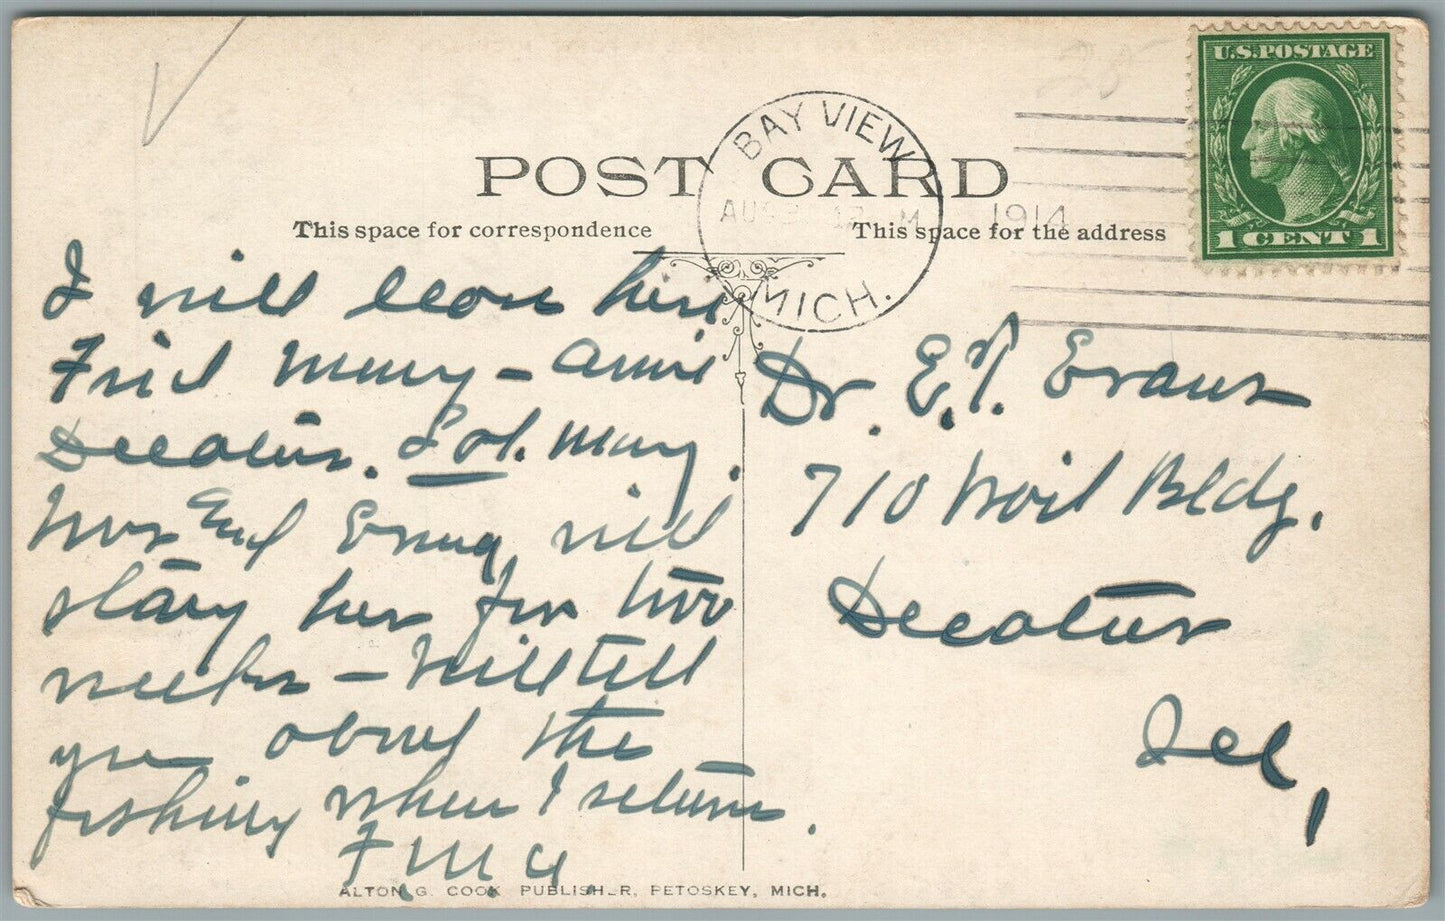 U.S. POSTAGE
1 CENT 1
BAY VIEW
MICH.
1914
POST CARD
This space for correspondence
This space for the address
I will leave here
Frid - arrive
Decatur. Sat.
Evans, will
stay here for two
weeks - Will tell
you about the
fishing when I return.
Dr. E. J. Evans
710 Bldg.
Decatur
Ill,
ALTON G. COOK PUBLISHER, PETOSKEY, MICH.